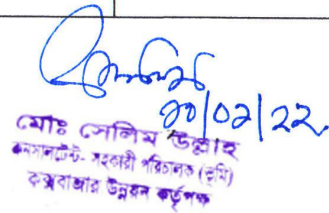 ২০/০২/২২
মোঃ সেলিম উল্লাহ
কনসালটেন্ট- সহকারী পরিচালক (ভূমি)
কক্সবাজার উন্নয়ন কর্তৃপক্ষ